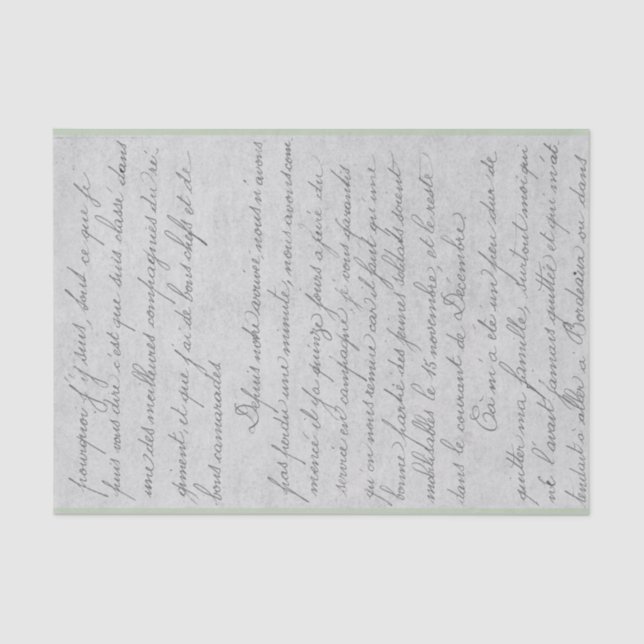 pourquoi j'y suis, tout ce que je
puis vous dire c'est que suis classé dans
une des meilleures compagnies du ré-
giment, et que j'ai de bons chefs et de
bons camarades
Depuis notre arrivée, nous n'avons
pas perdu une minute, nous avons com
mencé il y a quinze jours à faire du
service en campagne je vous garantis
qu'on nous remue car il faut qu'une
bonne partie des jeunes soldats soient
mobilisables le 15 novembre, et le reste
dans le courant de Decembre.
Cà m'a été un peu dur de
quitter ma famille, surtout moi qui
ne l'avait jamais quittée et qui m'at
tendait à aller à Bordeaux ou dans